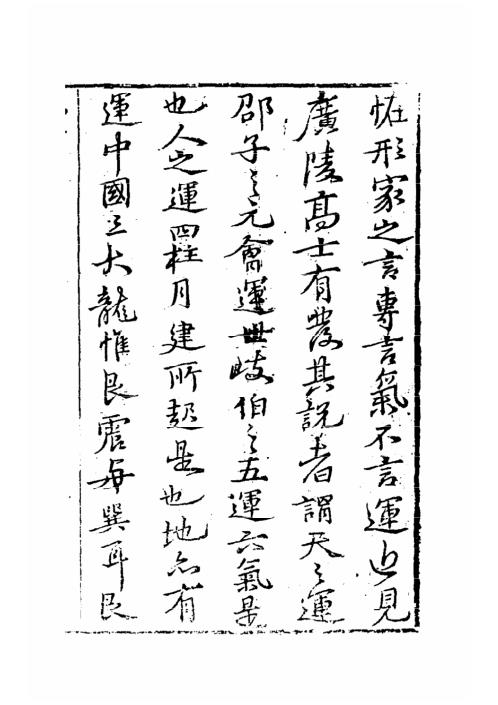 恠形家之言專言氣不言運近見
廣陵高士有發其說者謂天之運
邵子之元會運世歧伯之五運六氣是
也人之運四柱月建所起是也地亦有
運中國之大龍惟艮震與巽耳艮